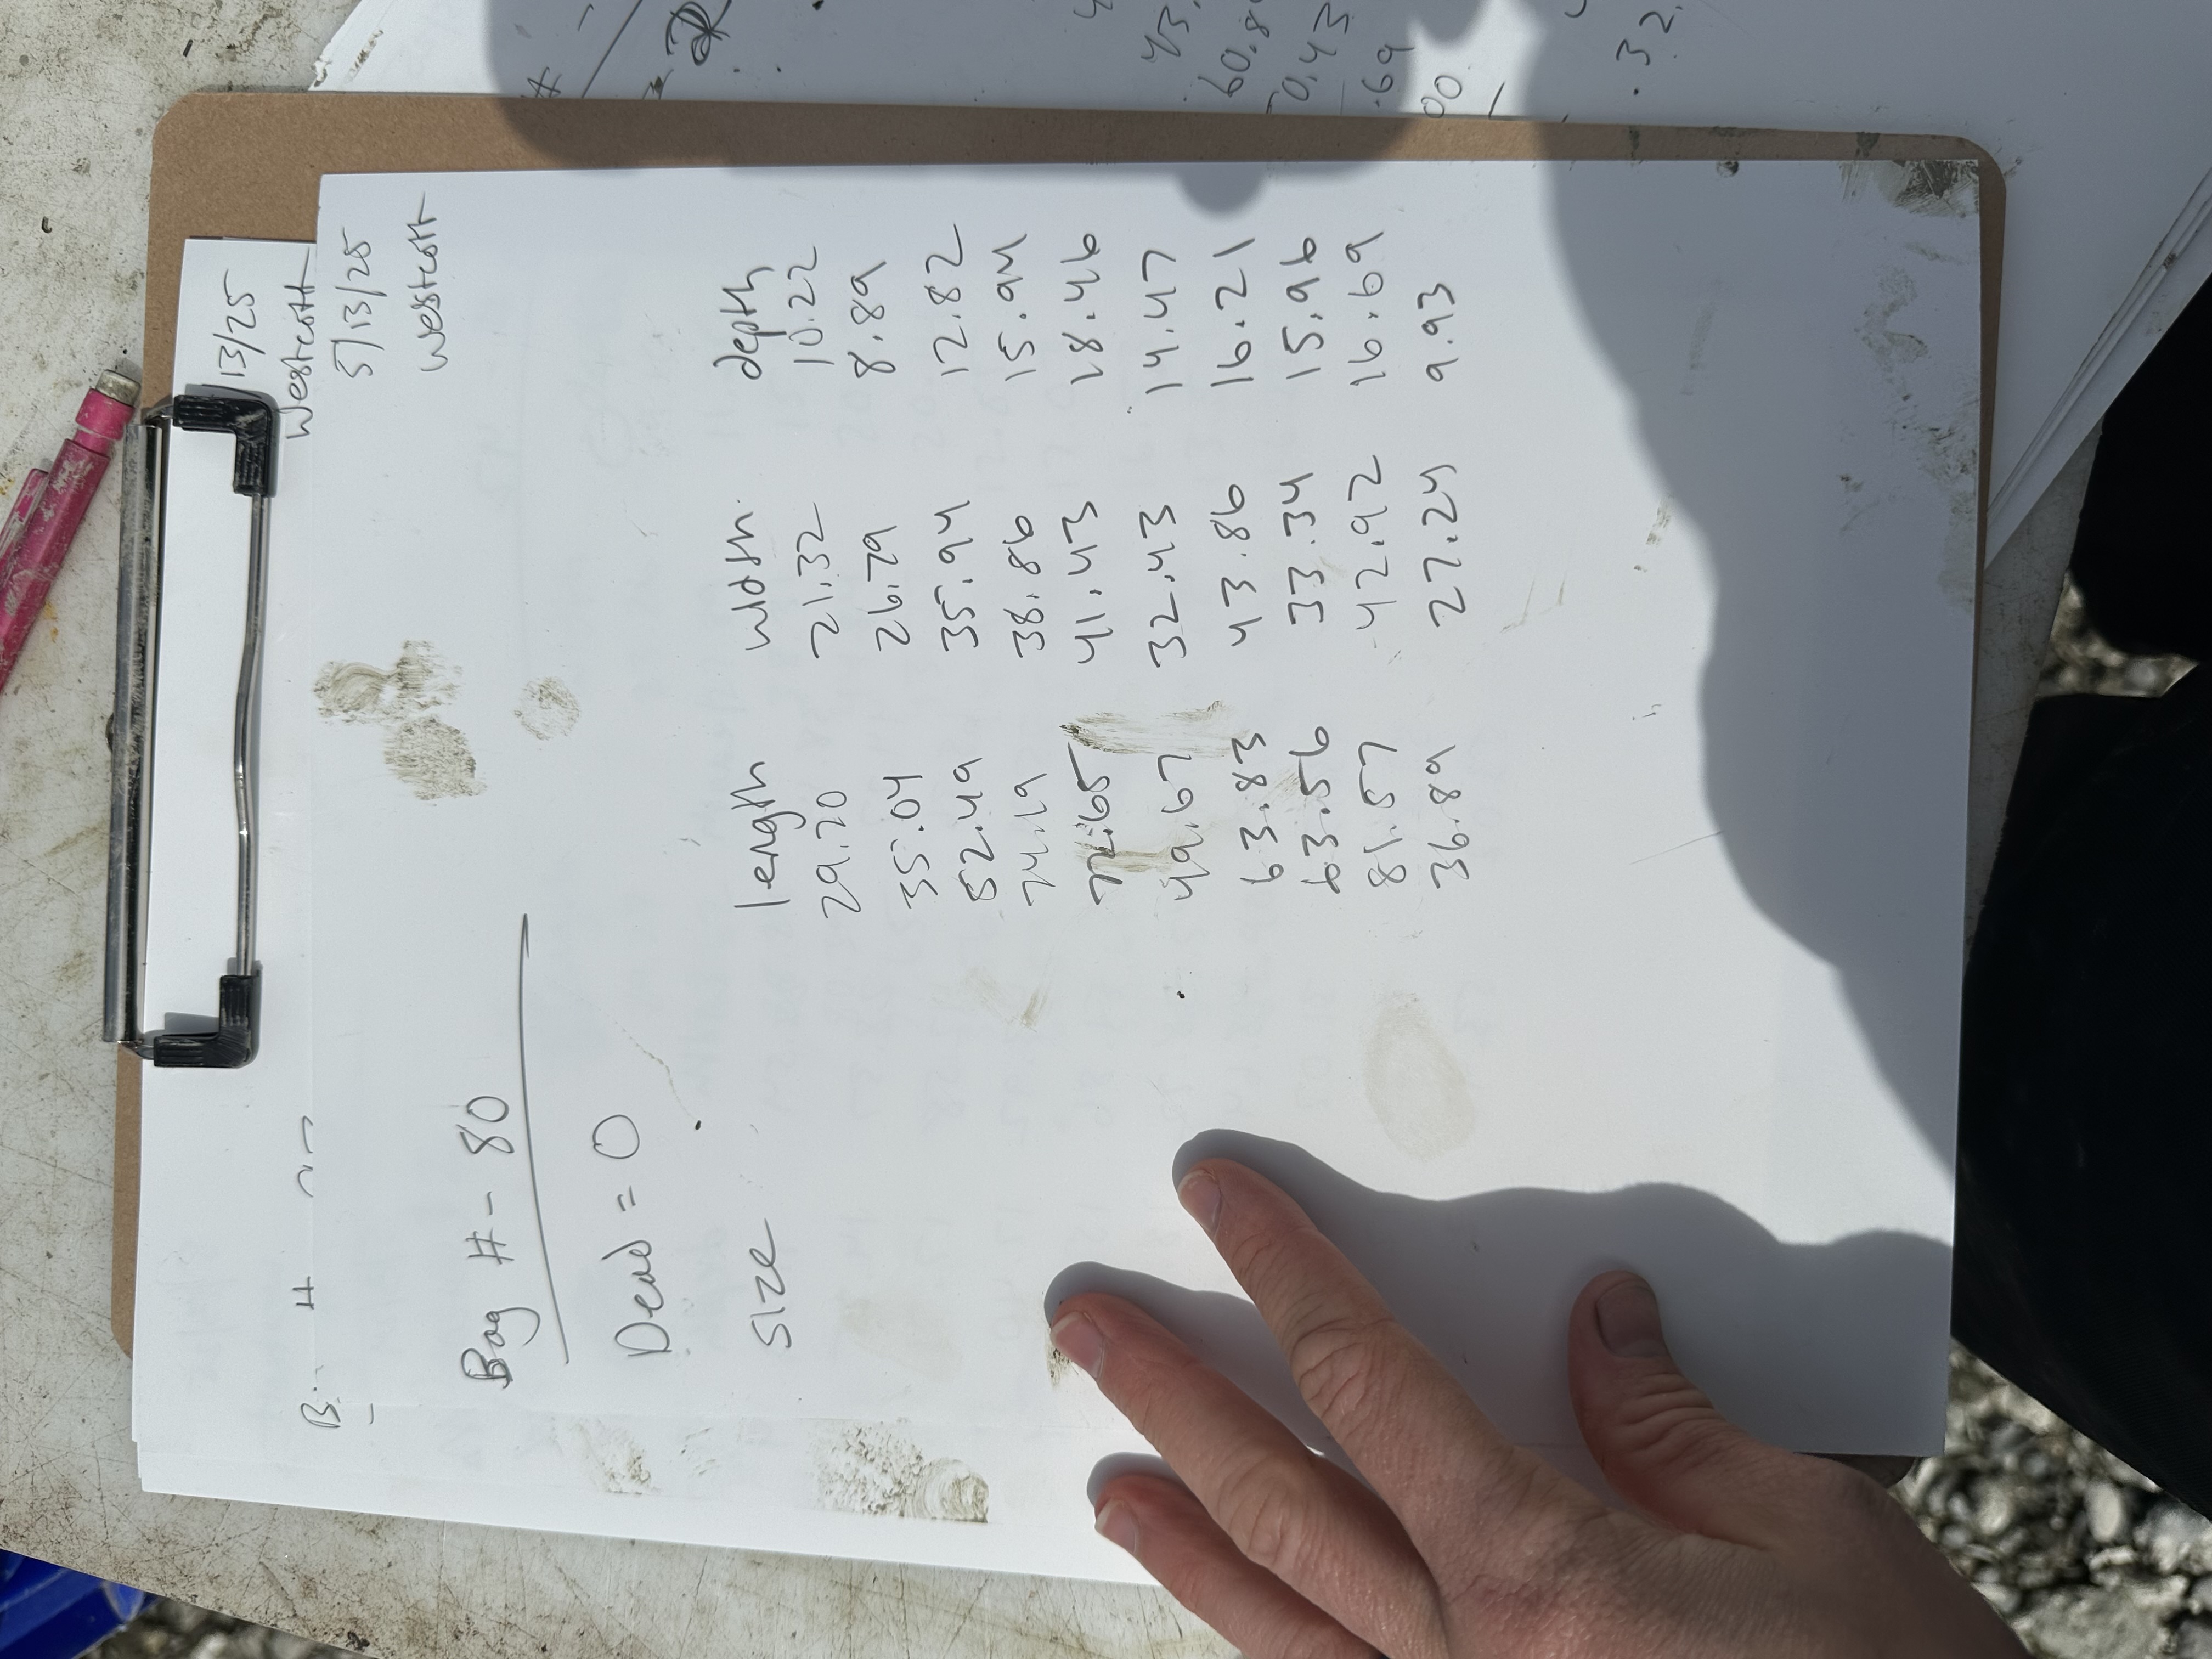 13/25
Westcott
5/13/25
Westcott
Bag #- 80
Dead = 0
size length width depth
29.20 21.32 10.22
35.04 26.79 8.89
52.49 35.94 12.82
74.19 38.86 15.94
72.65 41.43 18.46
49.67 32.43 14.47
63.83 43.86 16.21
63.56 33.34 15.96
81.57 42.92 16.69
36.89 27.24 9.93
43.
60.8
0.43
.69
00
.32.